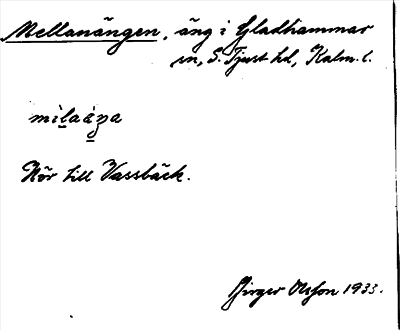 Mellanängen, äng i Gladhammar
sn, S. Tjust hd, Kalm. l.
mìlaáŋa
Hör till Vassbäck.
Birger Olsson 1933.